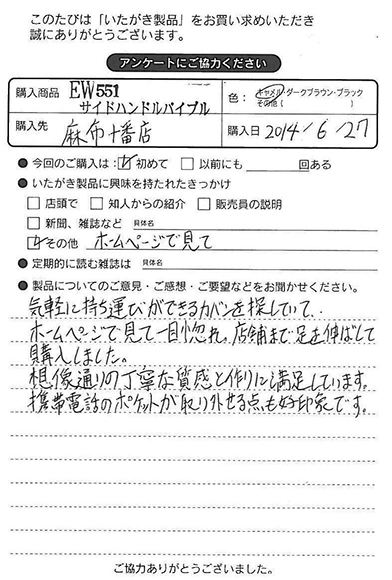 このたびは「いたがき製品」をお買い求めいただき
誠にありがとうございます。
アンケートにご協力ください
購入商品 EW551
サイドハンドルバイブル
色：キャメル・ダークブラウン・ブラック
その他（　　　）
購入先 麻布十番店 購入日 2014/6/27
● 今回のご購入は：☑ 初めて □ 以前にも　　回ある
● いたがき製品に興味を持たれたきっかけ
□ 店頭で □ 知人からの紹介 □ 販売員の説明
□ 新聞、雑誌など 具体名
☑ その他 ホームページで見て
● 定期的に読む雑誌は 具体名
● 製品についてのご意見・ご感想・ご要望などをお聞かせください。
気軽に持ち運びができるカバンを探していて、
ホームページで見て一目惚れ、店舗まで足を伸ばして
購入しました。
想像通りの丁寧な質感と作りに満足しています。
携帯電話のポケットが取り外せる点も好印象です。
ご協力ありがとうございました。